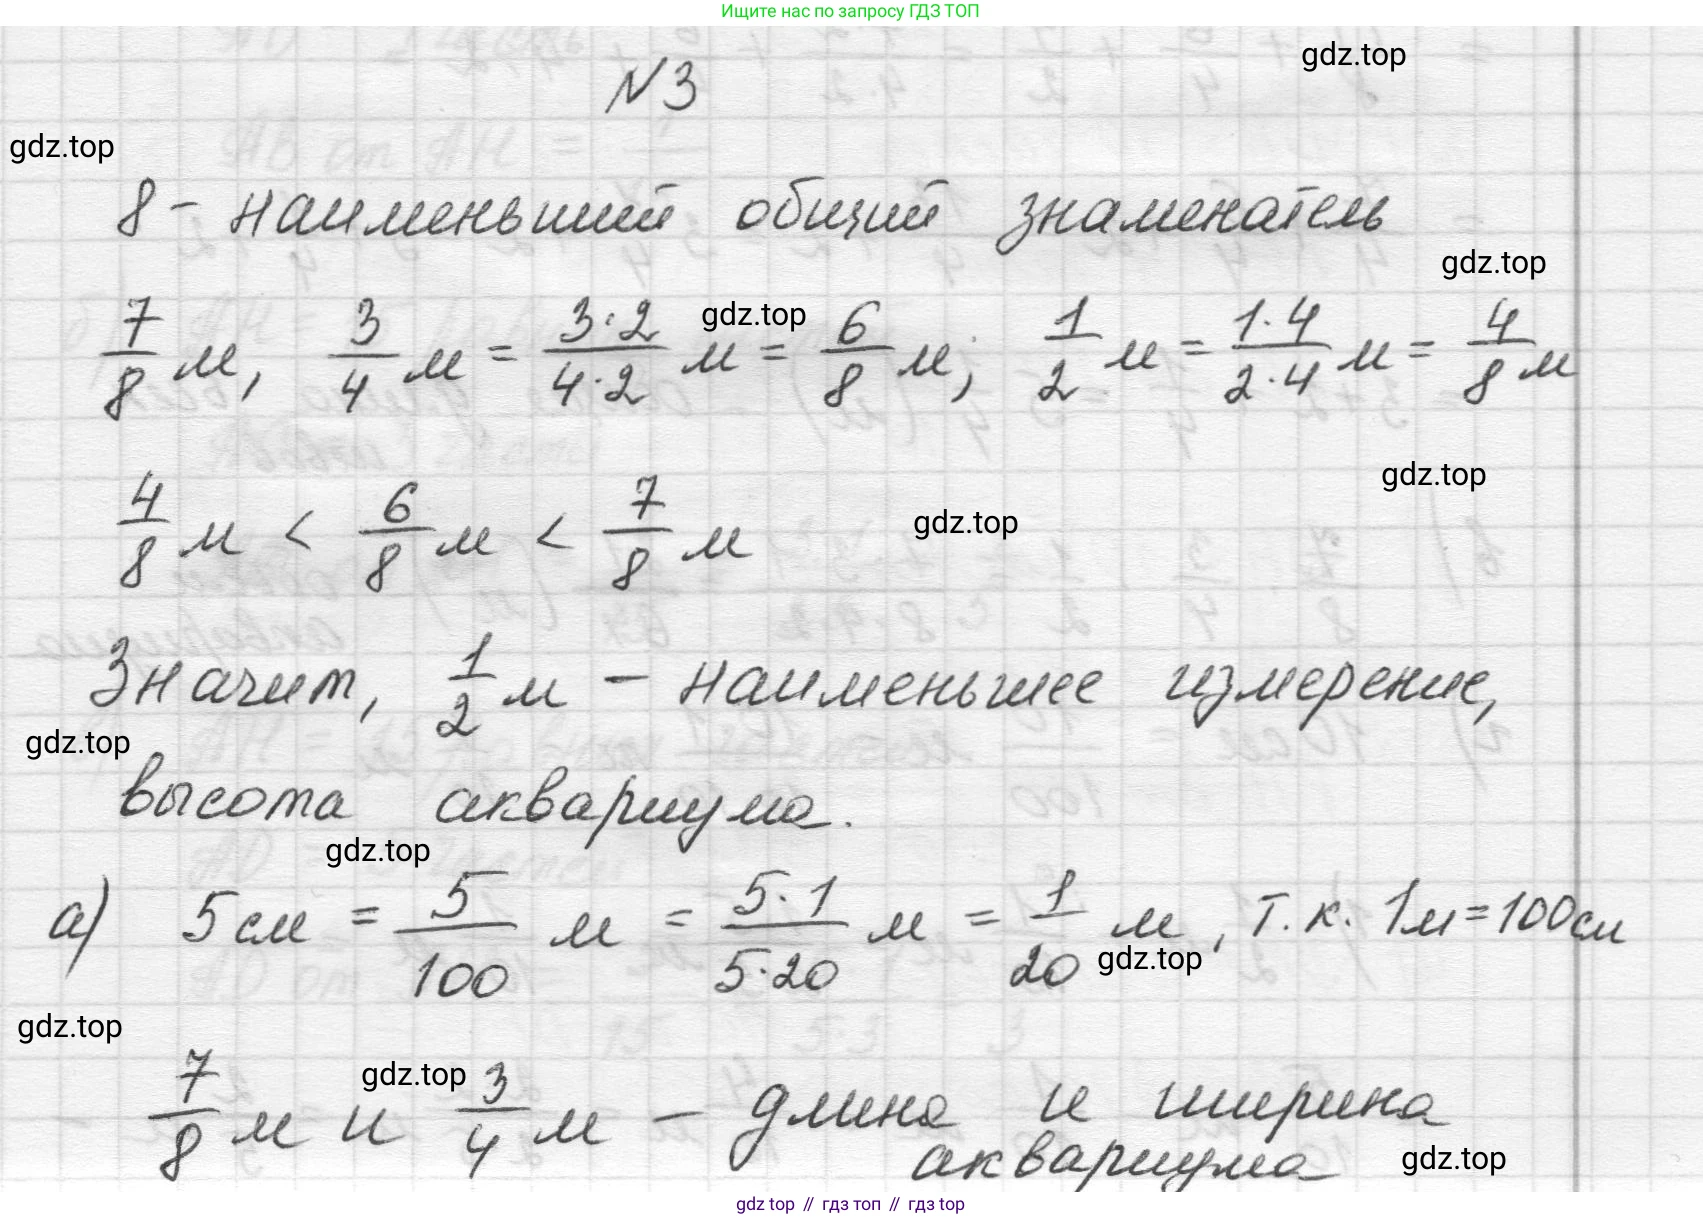 Ищите нас по запросу ГДЗ ТОП
gdz.top
№3
gdz.top
8 - наименьший общий знаменатель
gdz.top
7/8 м, 3/4 м = 3·2/4·2 м = 6/8 м; 1/2 м = 1·4/2·4 м = 4/8 м
gdz.top
4/8 м < 6/8 м < 7/8 м
gdz.top
gdz.top
Значит, 1/2 м - наименьшее измерение,
gdz.top
высота аквариума.
gdz.top
а) 5 см = 5/100 м = 5·1/5·20 м = 1/20 м, т.к. 1м=100см
gdz.top
gdz.top
7/8 м и 3/4 м - длина и ширина
gdz.top
аквариума
gdz.top
gdz top // гдз топ // gdz top